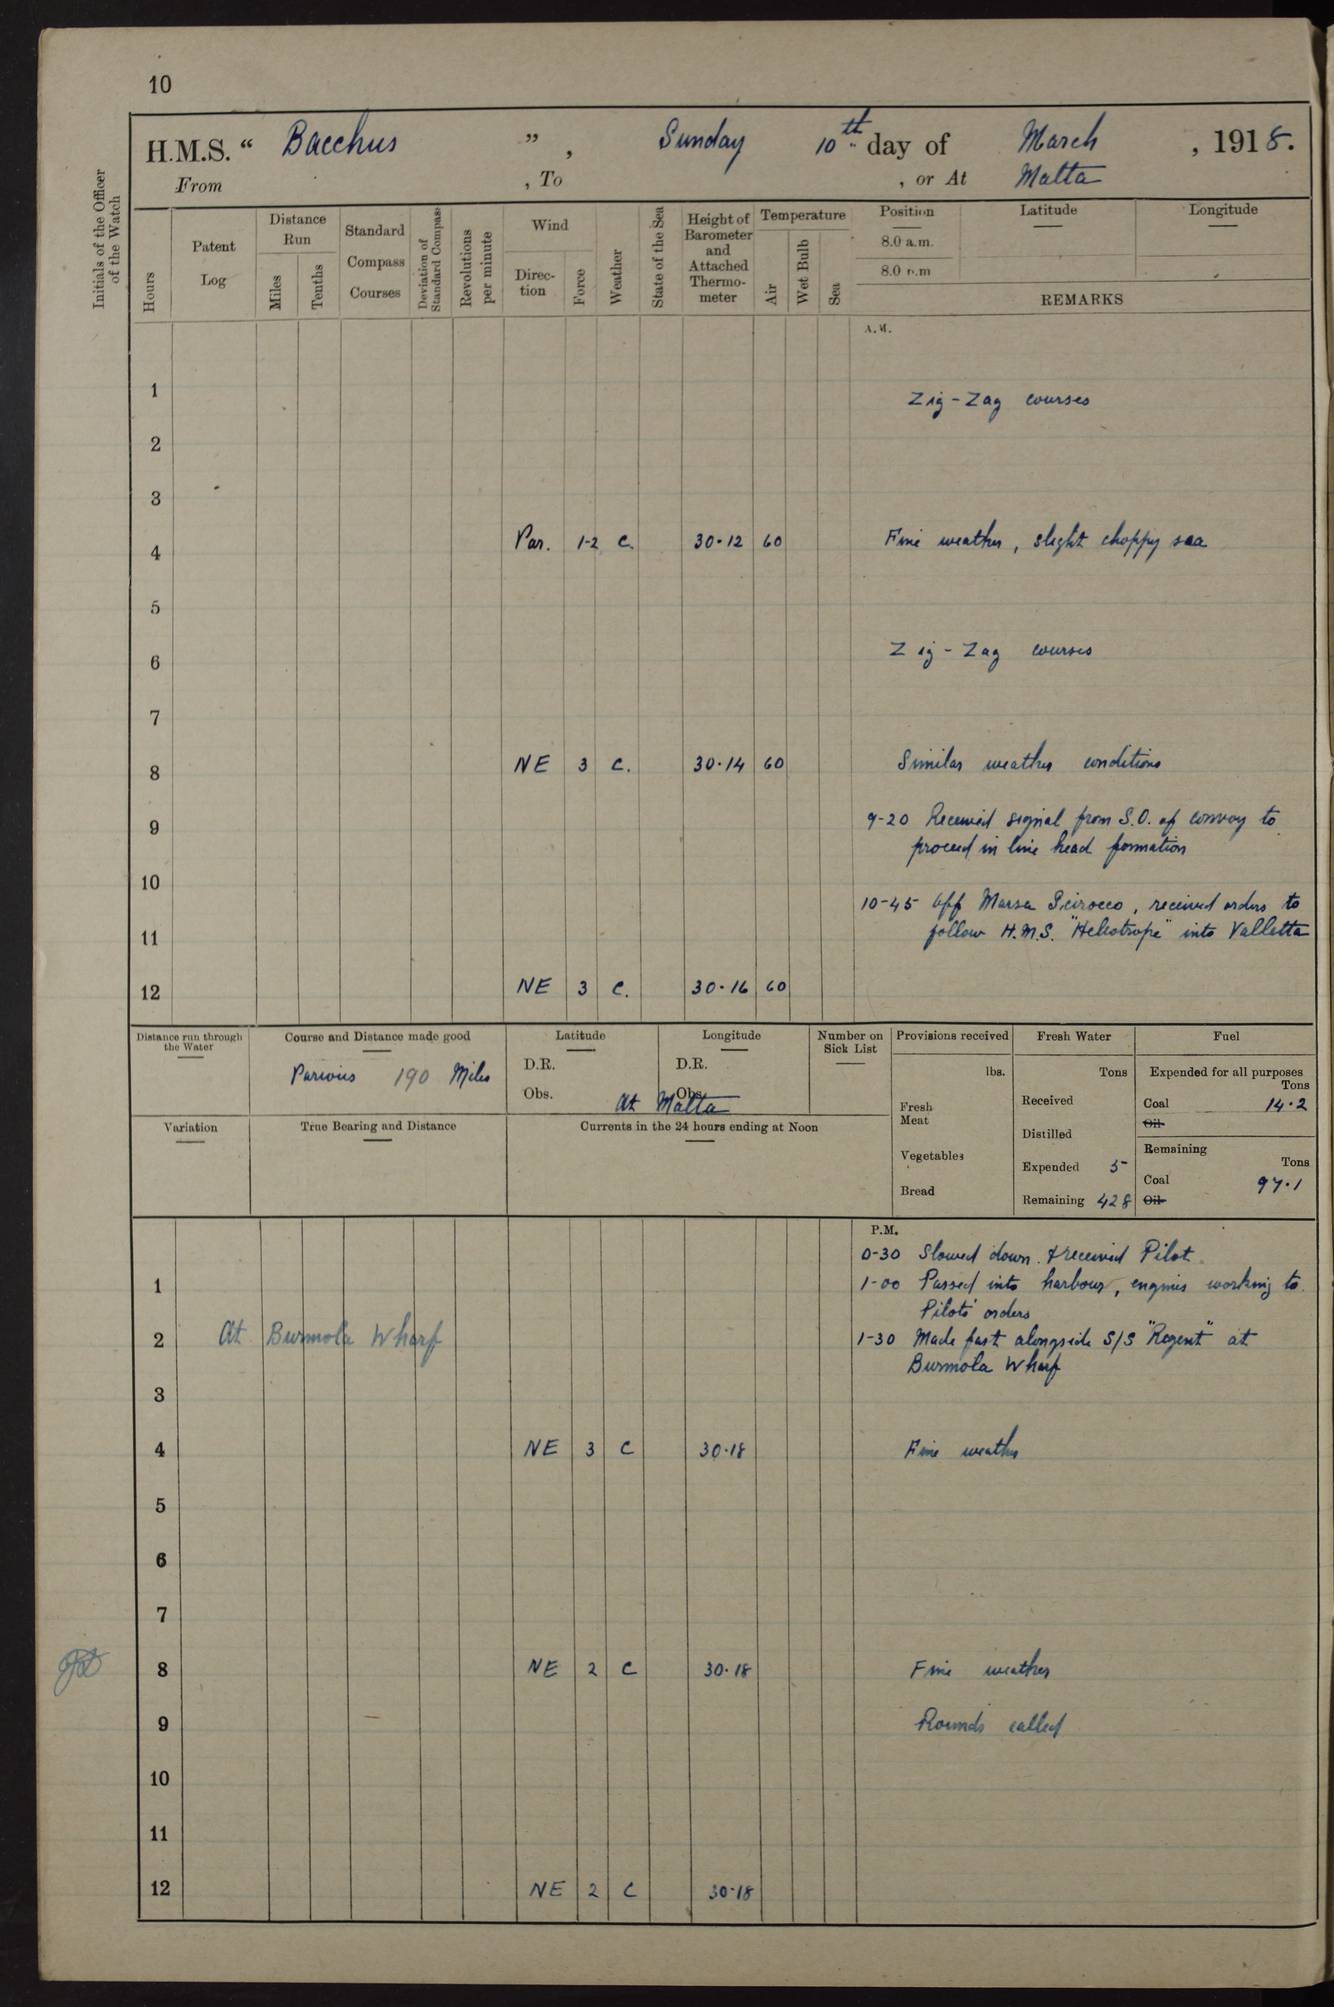 10
H.M.S. “ Bacchus ” , Sunday 10th day of March , 1918.
From , To , or At Malta
Initials of the Officer of the Watch
Hours
Patent Log
Distance Run
Miles
Tenths
Standard Compass Courses
Deviation of Standard Compass
Revolutions per minute
Wind
Direc- tion
Force
Weather
State of the Sea
Height of Barometer and Attached Thermo- meter
Temperature
Air
Wet Bulb
Sea
Position Latitude Longitude
8.0 a.m.
8.0 p.m
REMARKS
A.M.
1 Zig-Zag courses
2
3
4 Var. 1-2 c. 30.12 60 Fine weather, slight choppy sea
5
6 Zig-Zag courses
7
8 NE 3 c. 30.14 60 Similar weather conditions
9 9-20 Received signal from S.O. of convoy to
proceed in line head formation
10
10-45 Off Marsa Scirocco, received orders to
11 follow H.M.S. "Heliotrope" into Valletta
12 NE 3 c. 30.16 60
Distance run through the Water
Course and Distance made good
Various 190 Miles
Latitude
D.R.
Obs.
Longitude
D.R.
Obs.
At Malta
Number on Sick List
Provisions received
lbs.
Fresh Meat
Vegetables
Bread
Fresh Water
Tons
Received
Distilled
Expended 5
Remaining 428
Fuel
Expended for all purposes
Tons
Coal 14.2
Oil
Remaining
Tons
Coal 97.1
Oil
Variation
True Bearing and Distance
Currents in the 24 hours ending at Noon
P.M.
0-30 Slowed down & received Pilot
1 1-00 Passed into harbour, engines working to
Pilots' orders
2 At Burmola Wharf 1-30 Made fast alongside S/S "Regent" at
Burmola Wharf
3
4 NE 3 C 30.18 Fine weather
5
6
7
8 NE 2 C 30.18 Fine weather
9 Rounds called
10
11
12 NE 2 C 30.18